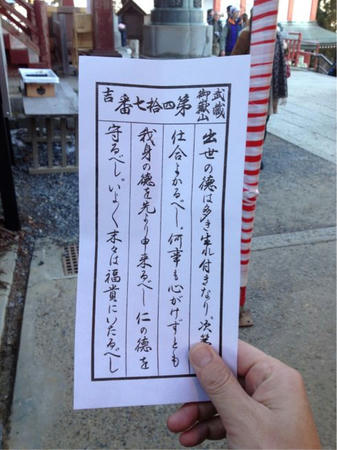 武蔵御嶽山
第四拾七番
吉
出世の徳は多き生れ付きなり。次第
仕合よかるべし。何事も心がけずとも
我身の徳を先より申来るべし 仁の徳を
守るべし。いよ〱末々は福貴にいたるべし